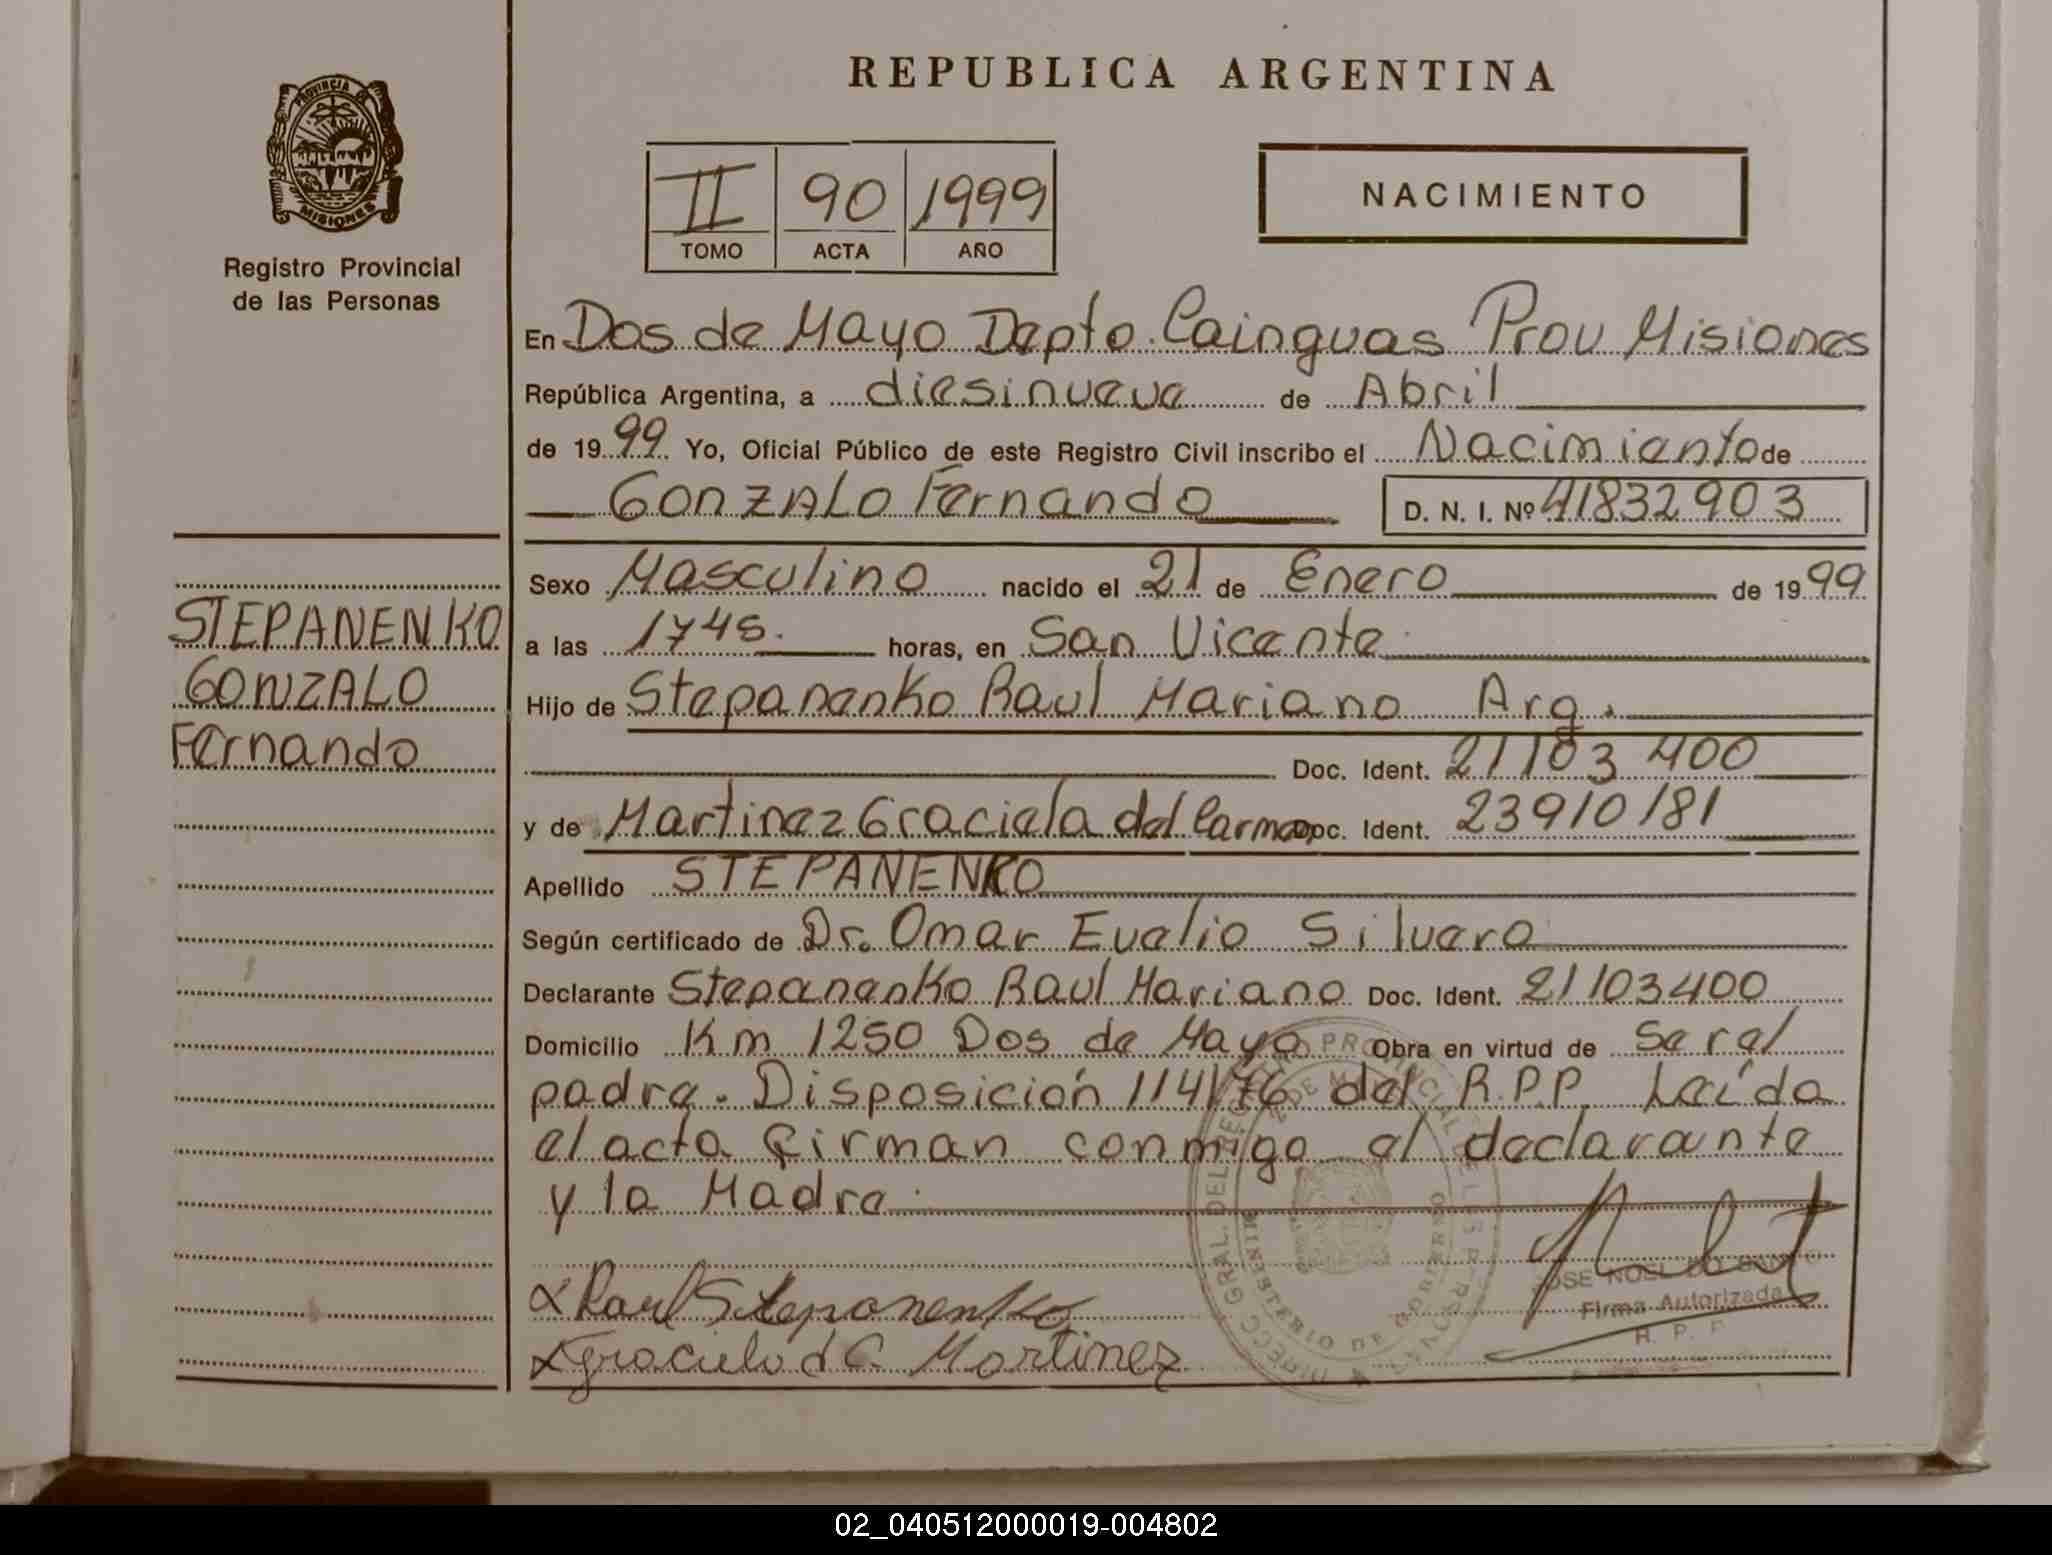 REPUBLICA ARGENTINA
PROVINCIA DE
MISIONES
Registro Provincial
de las Personas
II 90 1999
TOMO ACTA AÑO
NACIMIENTO
En Dos de Mayo Depto. Cainguas Prov Misiones
República Argentina, a diesinueve de Abril
de 1999 Yo, Oficial Público de este Registro Civil inscribo el Nacimiento de
GONZALO Fernando D. N. I. Nº 41832903
Sexo Masculino nacido el 21 de Enero de 1999
a las 1745. horas, en San Vicente
Hijo de Stepanenko Raul Mariano Arg.
Doc. Ident. 21103400
y de Martinez Graciela del Carmen Doc. Ident. 23910181
Apellido STEPANENKO
Según certificado de Dr. Omar Evelio Silvero
Declarante Stepanenko Raul Mariano Doc. Ident. 21103400
Domicilio Km 1250 Dos de Mayo Obra en virtud de Ser el
padre. Disposición 114/76 del R.P.P. Leída
el acta firman conmigo el declarante
y la Madre.
STEPANENKO
GONZALO
Fernando
x Raul Stepanenko
x Graciela d C. Martinez
JOSE NOEL DO
Firma Autorizada
R. P. P.
DIRECC GRAL. DEL REGISTRO PROVINCIAL DE LAS PERSONAS
2 DE MAYO
MINISTERIO DE GOBIERNO
02_040512000019-004802